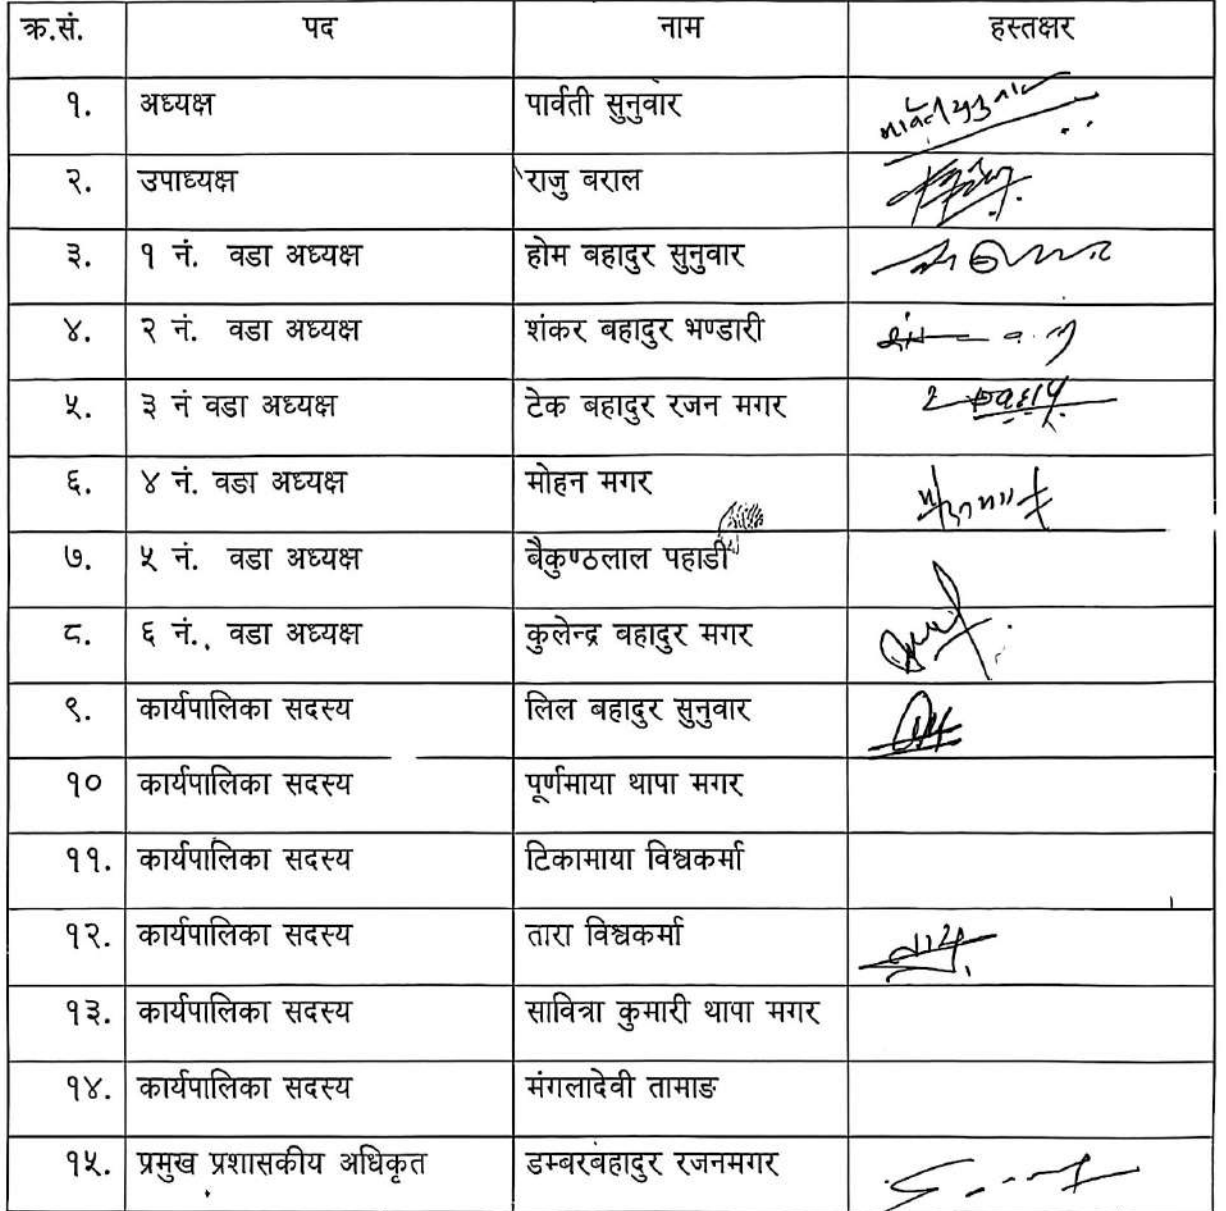 क्र.सं. पद नाम हस्तक्षर
१. अध्यक्ष पार्वती सुनुवार
२. उपाध्यक्ष राजु बराल
३. १ नं. वडा अध्यक्ष होम बहादुर सुनुवार
४. २ नं. वडा अध्यक्ष शंकर बहादुर भण्डारी
५. ३ नं वडा अध्यक्ष टेक बहादुर रजन मगर
६. ४ नं. वडा अध्यक्ष मोहन मगर
७. ५ नं. वडा अध्यक्ष बैकुण्ठलाल पहाडी
८. ६ नं. वडा अध्यक्ष कुलेन्द्र बहादुर मगर
९. कार्यपालिका सदस्य लिल बहादुर सुनुवार
१० कार्यपालिका सदस्य पूर्णमाया थापा मगर
११. कार्यपालिका सदस्य टिकामाया विश्वकर्मा
१२. कार्यपालिका सदस्य तारा विश्वकर्मा
१३. कार्यपालिका सदस्य सावित्रा कुमारी थापा मगर
१४. कार्यपालिका सदस्य मंगलादेवी तामाङ
१५. प्रमुख प्रशासकीय अधिकृत डम्बरबहादुर रजनमगर